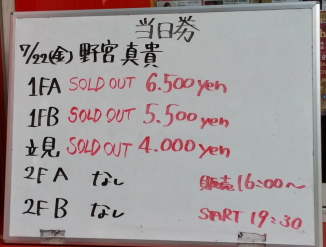 当日券
7/22(金) 野宮真貴
1FA SOLD OUT 6.500yen
1FB SOLD OUT 5.500yen
立見 SOLD OUT 4.000yen
2F A なし 販売 16:00〜
2F B なし START 19:30